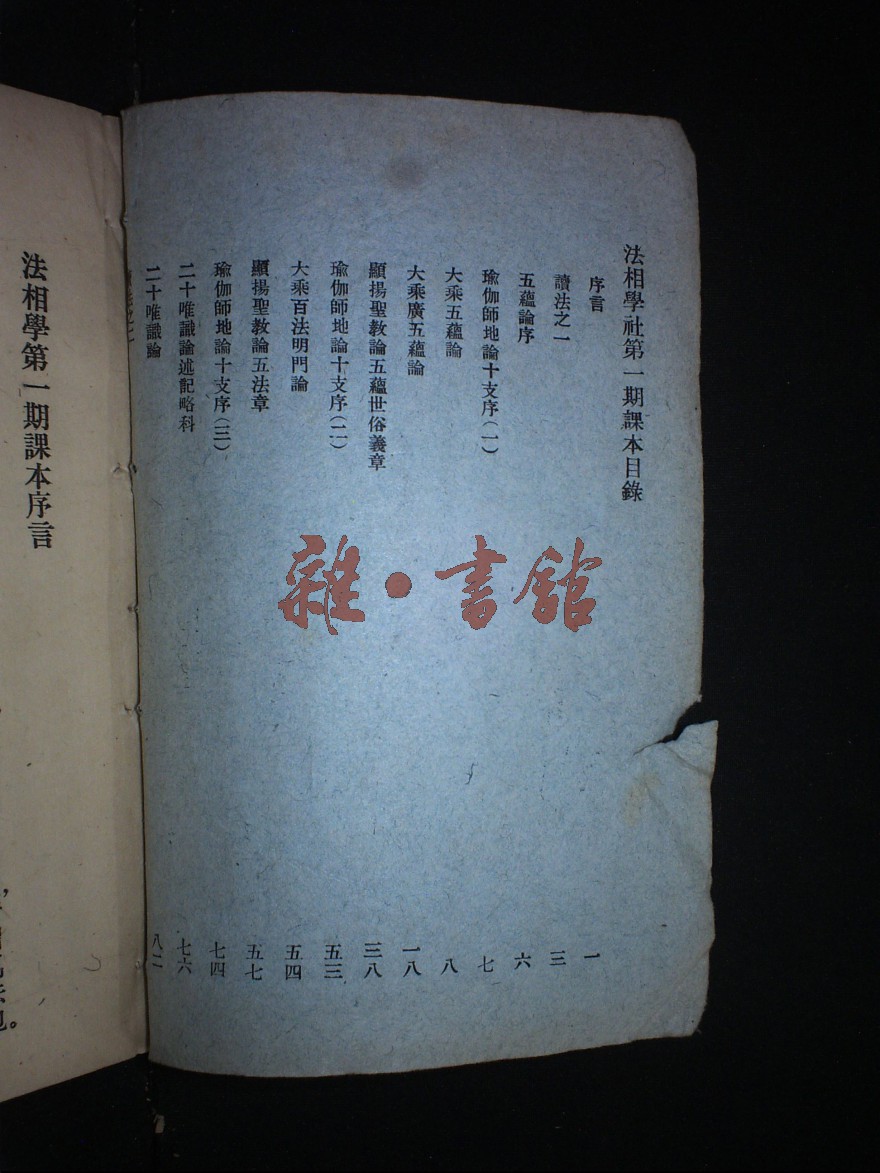 法相學社第一期課本目錄
序言 一
讀法之一 三
五蘊論序 六
瑜伽師地論十支序(一) 七
大乘五蘊論 八
大乘廣五蘊論 一八
顯揚聖教論五蘊世俗義章 三八
瑜伽師地論十支序(二) 五三
大乘百法明門論 五四
顯揚聖教論五法章 五七
瑜伽師地論十支序(三) 七四
二十唯識論述記略科 七六
二十唯識論 八二
法相學第一期課本序言
雜•書館